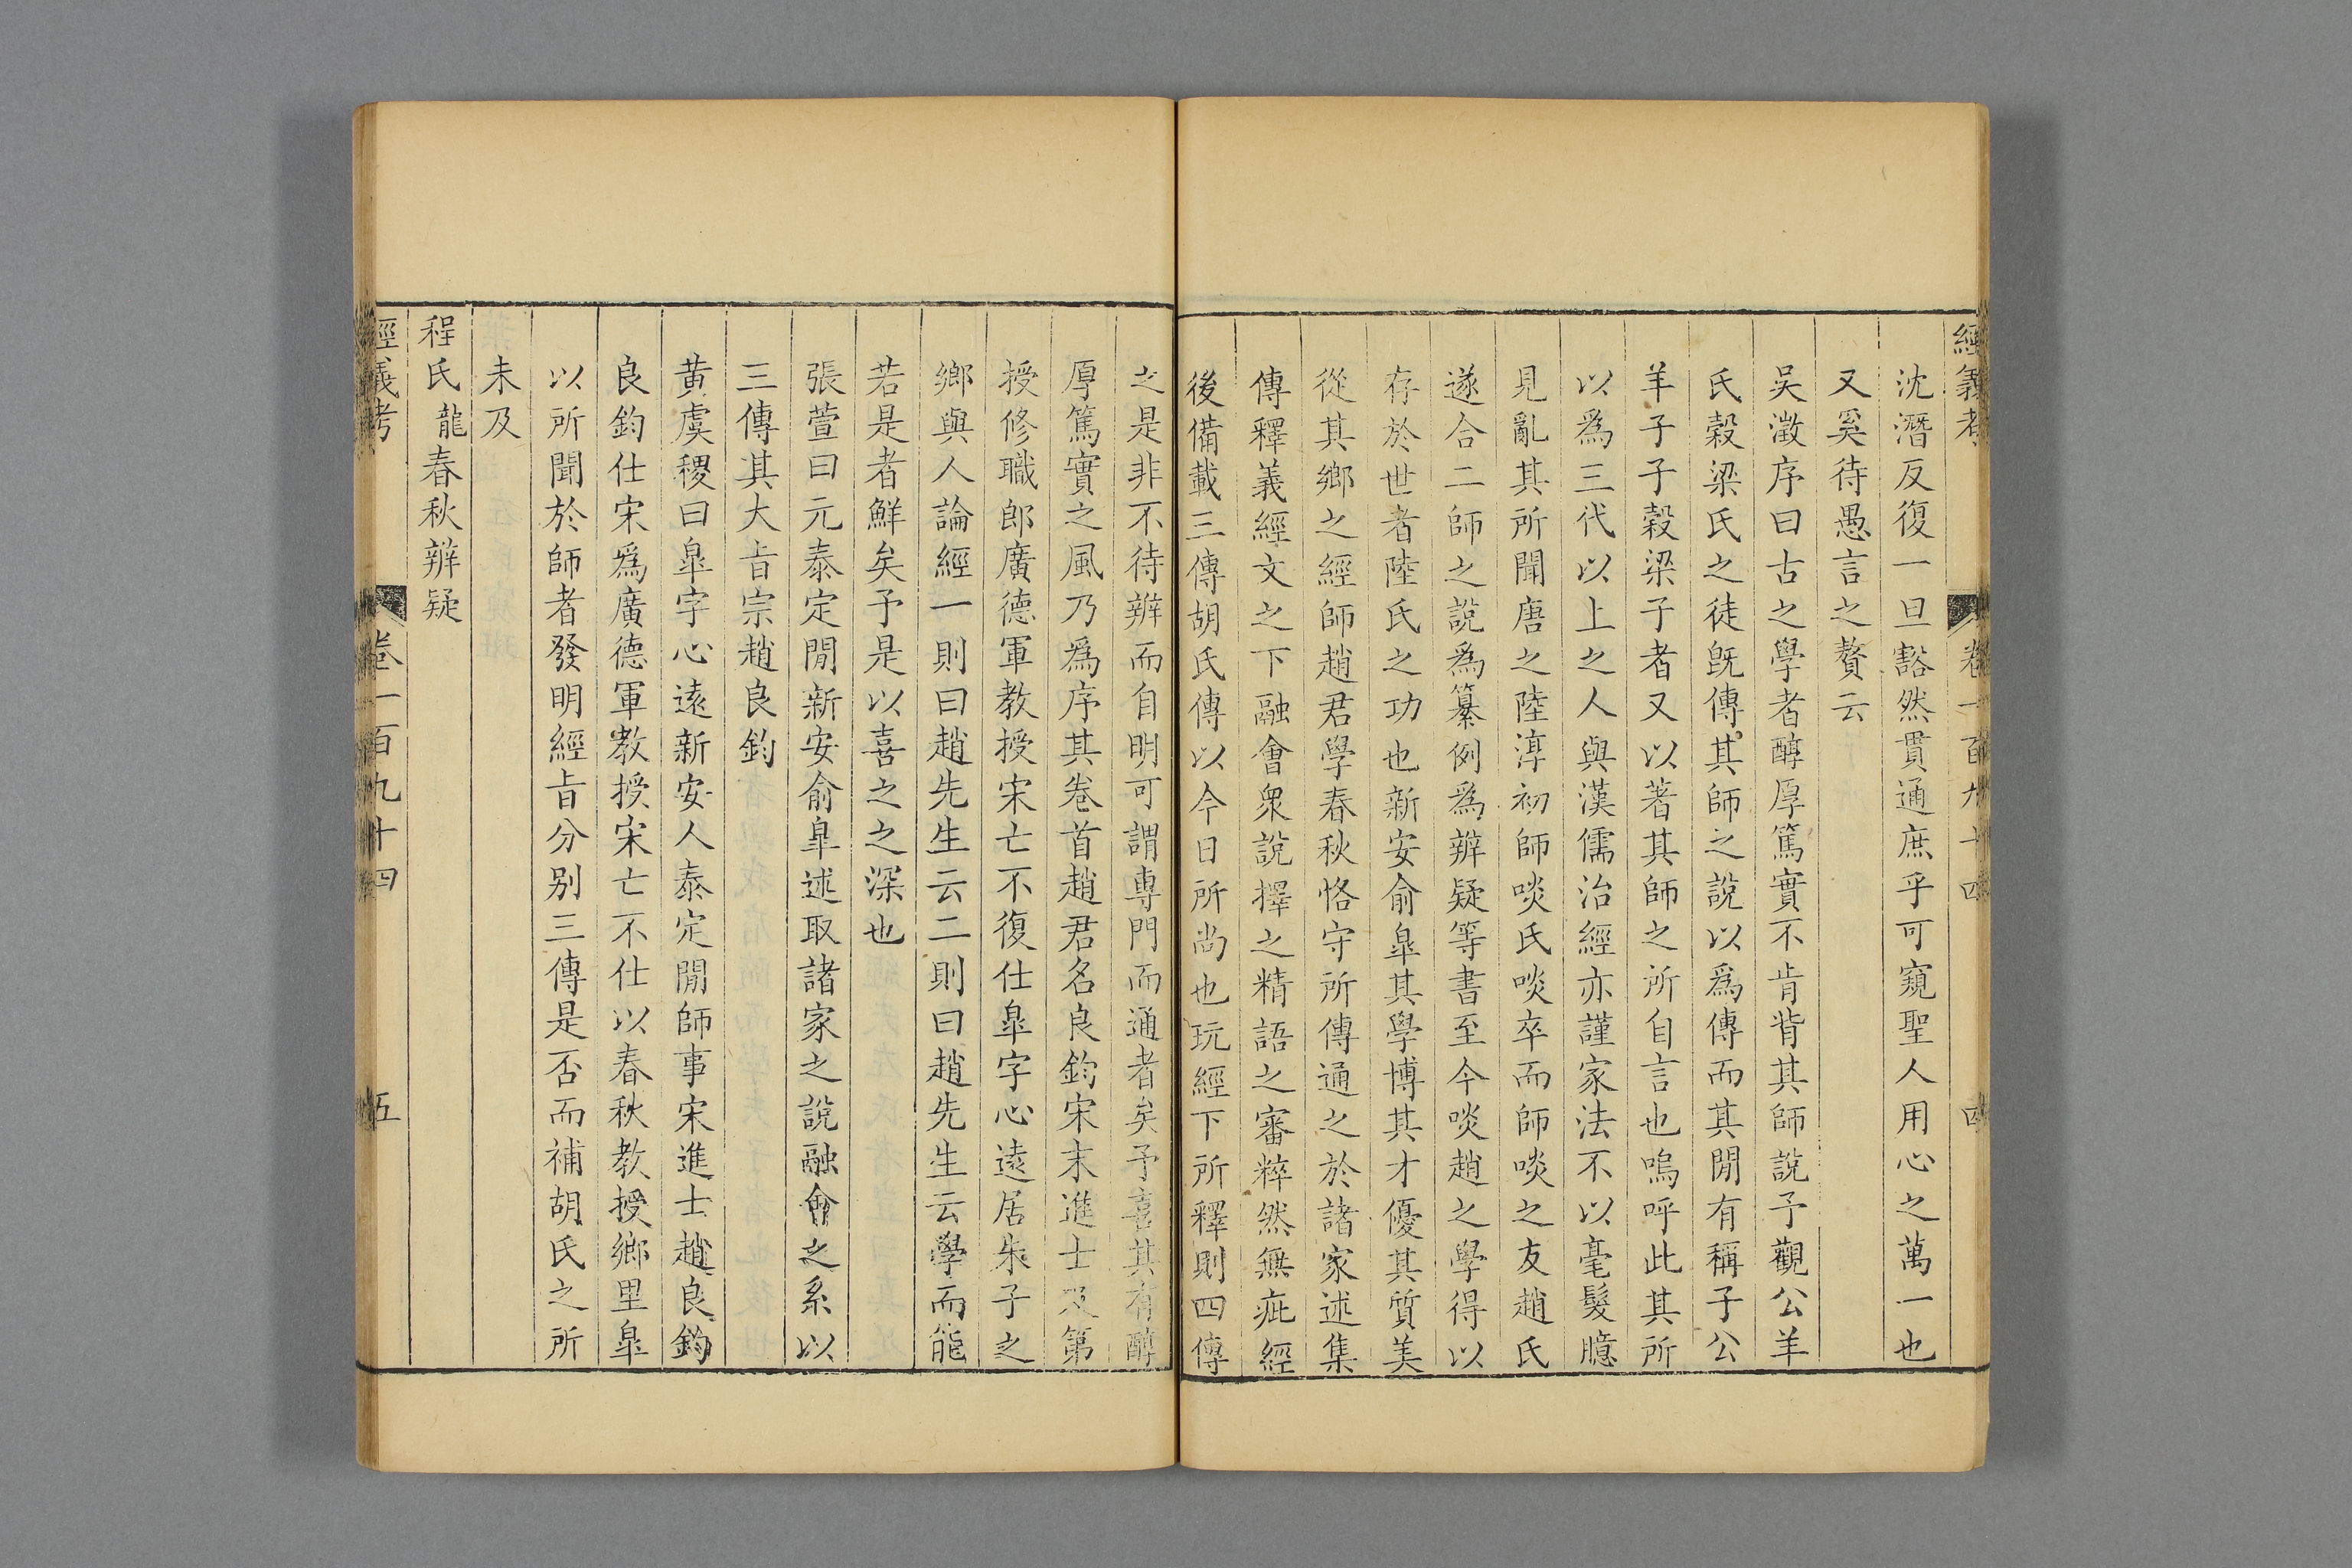 經義考 卷一百九十四 四
沈潛反復一旦豁然貫通庶乎可窺聖人用心之萬一也
又奚待愚言之贅云
吳澂序曰古之學者醇厚篤實不肯背其師說予觀公羊
氏穀梁氏之徒旣傳其師之說以爲傳而其閒有稱子公
羊子子穀梁子者又以著其師之所自言也嗚呼此其所
以爲三代以上之人與漢儒治經亦謹家法不以毫髮臆
見亂其所聞唐之陸淳初師啖氏啖卒而師啖之友趙氏
遂合二師之說爲纂例爲辨疑等書至今啖趙之學得以
存於世者陸氏之功也新安俞皐其學博其才優其質美
從其鄉之經師趙君學春秋恪守所傳通之於諸家述集
傳釋義經文之下融會衆說擇之精語之審粹然無疵經
後備載三傳胡氏傳以今日所尚也玩經下所釋則四傳
之是非不待辨而自明可謂專門而通者矣予喜其有醇
厚篤實之風乃爲序其卷首趙君名良鈞宋末進士及第
授修職郎廣德軍教授宋亡不復仕皐字心遠居朱子之
鄉與人論經一則曰趙先生云二則曰趙先生云學而能
若是者鮮矣予是以喜之之深也
張萱曰元泰定閒新安俞皐述取諸家之說融會之系以
三傳其大旨宗趙良鈞
黃虞稷曰皐字心遠新安人泰定閒師事宋進士趙良鈞
良鈞仕宋爲廣德軍教授宋亡不仕以春秋教授鄉里皐
以所聞於師者發明經旨分别三傳是否而補胡氏之所
未及
程氏龍春秋辨疑
經義考 卷一百九十四 五